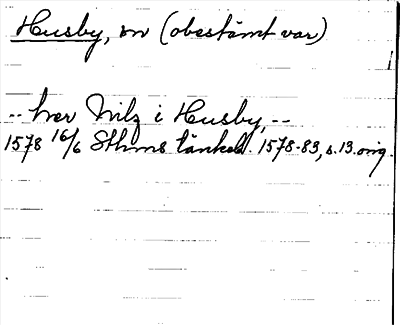 Husby, on (obestämt var)
-- her Nilz i Husby, --
1578 16/6 Sthms tänkeb. 1578-83, s. 13. orig.